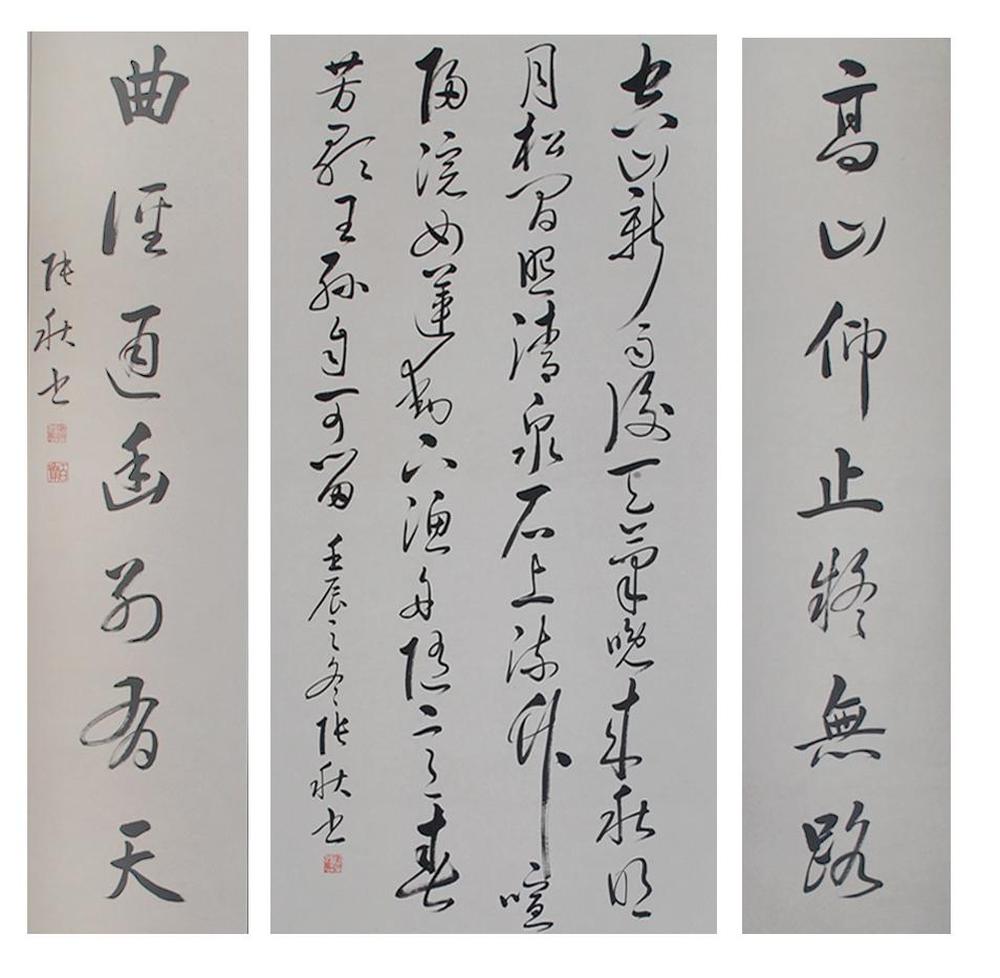 高山仰止疑無路
空山新雨後天氣晚來秋明
月松間照清泉石上流竹喧
歸浣女蓮動下漁舟隨意春
芳歇王孫自可留 壬辰之冬張秋書
曲徑通幽別有天
張秋書